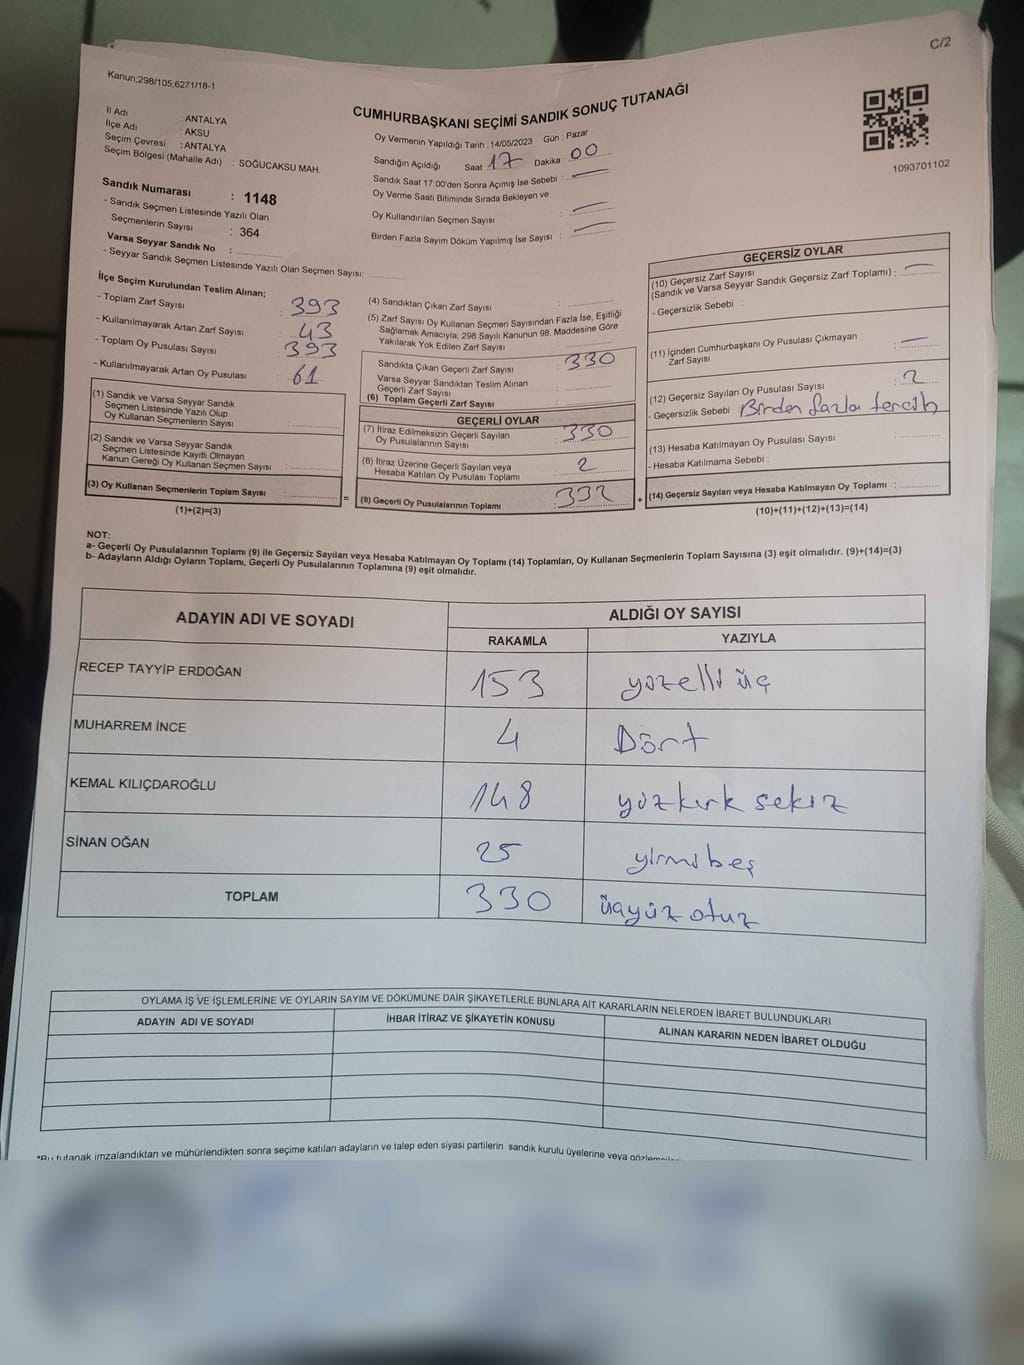 C/2
Kanun;298/105,6271/18-1
CUMHURBAŞKANI SEÇİMİ SANDIK SONUÇ TUTANAĞI
İl Adı : ANTALYA
İlçe Adı : AKSU
Seçim Çevresi : ANTALYA
Seçim Bölgesi (Mahalle Adı) : SOĞUCAKSU MAH.
Sandık Numarası : 1148
- Sandık Seçmen Listesinde Yazılı Olan
Seçmenlerin Sayısı : 364
Varsa Seyyar Sandık No :
- Seyyar Sandık Seçmen Listesinde Yazılı Olan Seçmen Sayısı:
Oy Vermenin Yapıldığı Tarih :14/05/2023 Gün : Pazar
Sandığın Açıldığı Saat 17 Dakika : 00
Sandık Saat 17:00'den Sonra Açımış İse Sebebi : —
Oy Verme Saati Bitiminde Sırada Bekleyen ve
Oy Kullandırılan Seçmen Sayısı : —
Birden Fazla Sayım Döküm Yapılmış İse Sayısı : —
1093701102
İlçe Seçim Kurulundan Teslim Alınan;
- Toplam Zarf Sayısı : 393
- Kullanılmayarak Artan Zarf Sayısı : 43
- Toplam Oy Pusulası Sayısı : 393
- Kullanılmayarak Artan Oy Pusulası : 61
(1) Sandık ve Varsa Seyyar Sandık
Seçmen Listesinde Yazılı Olup
Oy Kullanan Seçmenlerin Sayısı :
(2) Sandık ve Varsa Seyyar Sandık
Seçmen Listesinde Kayıtlı Olmayan
Kanun Gereği Oy Kullanan Seçmen Sayısı :
(3) Oy Kullanan Seçmenlerin Toplam Sayısı :
(1)+(2)=(3)
=
(4) Sandıktan Çıkan Zarf Sayısı :
(5) Zarf Sayısı Oy Kullanan Seçmen Sayısından Fazla İse, Eşitliği
Sağlamak Amacıyla; 298 Sayılı Kanunun 98. Maddesine Göre
Yakılarak Yok Edilen Zarf Sayısı :
Sandıkta Çıkan Geçerli Zarf Sayısı : 330
Varsa Seyyar Sandıktan Teslim Alınan
Geçerli Zarf Sayısı :
(6) Toplam Geçerli Zarf Sayısı :
GEÇERLİ OYLAR
(7) İtiraz Edilmeksizin Geçerli Sayılan
Oy Pusulalarının Sayısı : 330
(8) İtiraz Üzerine Geçerli Sayılan veya
Hesaba Katılan Oy Pusulası Toplamı : 2
(9) Geçerli Oy Pusulalarının Toplamı : 332
+
GEÇERSİZ OYLAR
(10) Geçersiz Zarf Sayısı
(Sandık ve Varsa Seyyar Sandık Geçersiz Zarf Toplamı) : —
- Geçersizlik Sebebi :
(11) İçinden Cumhurbaşkanı Oy Pusulası Çıkmayan
Zarf Sayısı : —
(12) Geçersiz Sayılan Oy Pusulası Sayısı : 2
- Geçersizlik Sebebi Birden fazla tercih
(13) Hesaba Katılmayan Oy Pusulası Sayısı :
- Hesaba Katılmama Sebebi :
(14) Geçersiz Sayılan veya Hesaba Katılmayan Oy Toplamı :
(10)+(11)+(12)+(13)=(14)
NOT:
a- Geçerli Oy Pusulalarının Toplamı (9) ile Geçersiz Sayılan veya Hesaba Katılmayan Oy Toplamı (14) Toplamları, Oy Kullanan Seçmenlerin Toplam Sayısına (3) eşit olmalıdır. (9)+(14)=(3)
b- Adayların Aldığı Oyların Toplamı, Geçerli Oy Pusulalarının Toplamına (9) eşit olmalıdır.
ADAYIN ADI VE SOYADI ALDIĞI OY SAYISI
RAKAMLA YAZIYLA
RECEP TAYYİP ERDOĞAN 153 yüzelli üç
MUHARREM İNCE 4 Dört
KEMAL KILIÇDAROĞLU 148 yüzkırk sekiz
SİNAN OĞAN 25 yirmi beş
TOPLAM 330 üçyüz otuz
OYLAMA İŞ VE İŞLEMLERİNE VE OYLARIN SAYIM VE DÖKÜMÜNE DAİR ŞİKAYETLERLE BUNLARA AİT KARARLARIN NELERDEN İBARET BULUNDUKLARI
ADAYIN ADI VE SOYADI İHBAR İTİRAZ VE ŞİKAYETİN KONUSU ALINAN KARARIN NEDEN İBARET OLDUĞU
*Bu tutanak imzalandıktan ve mühürlendikten sonra seçime katılan adayların ve talep eden siyasi partilerin sandık kurulu üyelerine veya